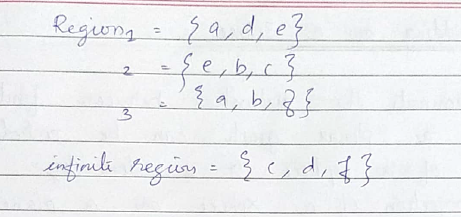 Region1 = {a, d, e}
2 = {e, b, c}
3 = {a, b, f}
infinite region = {c, d, f}